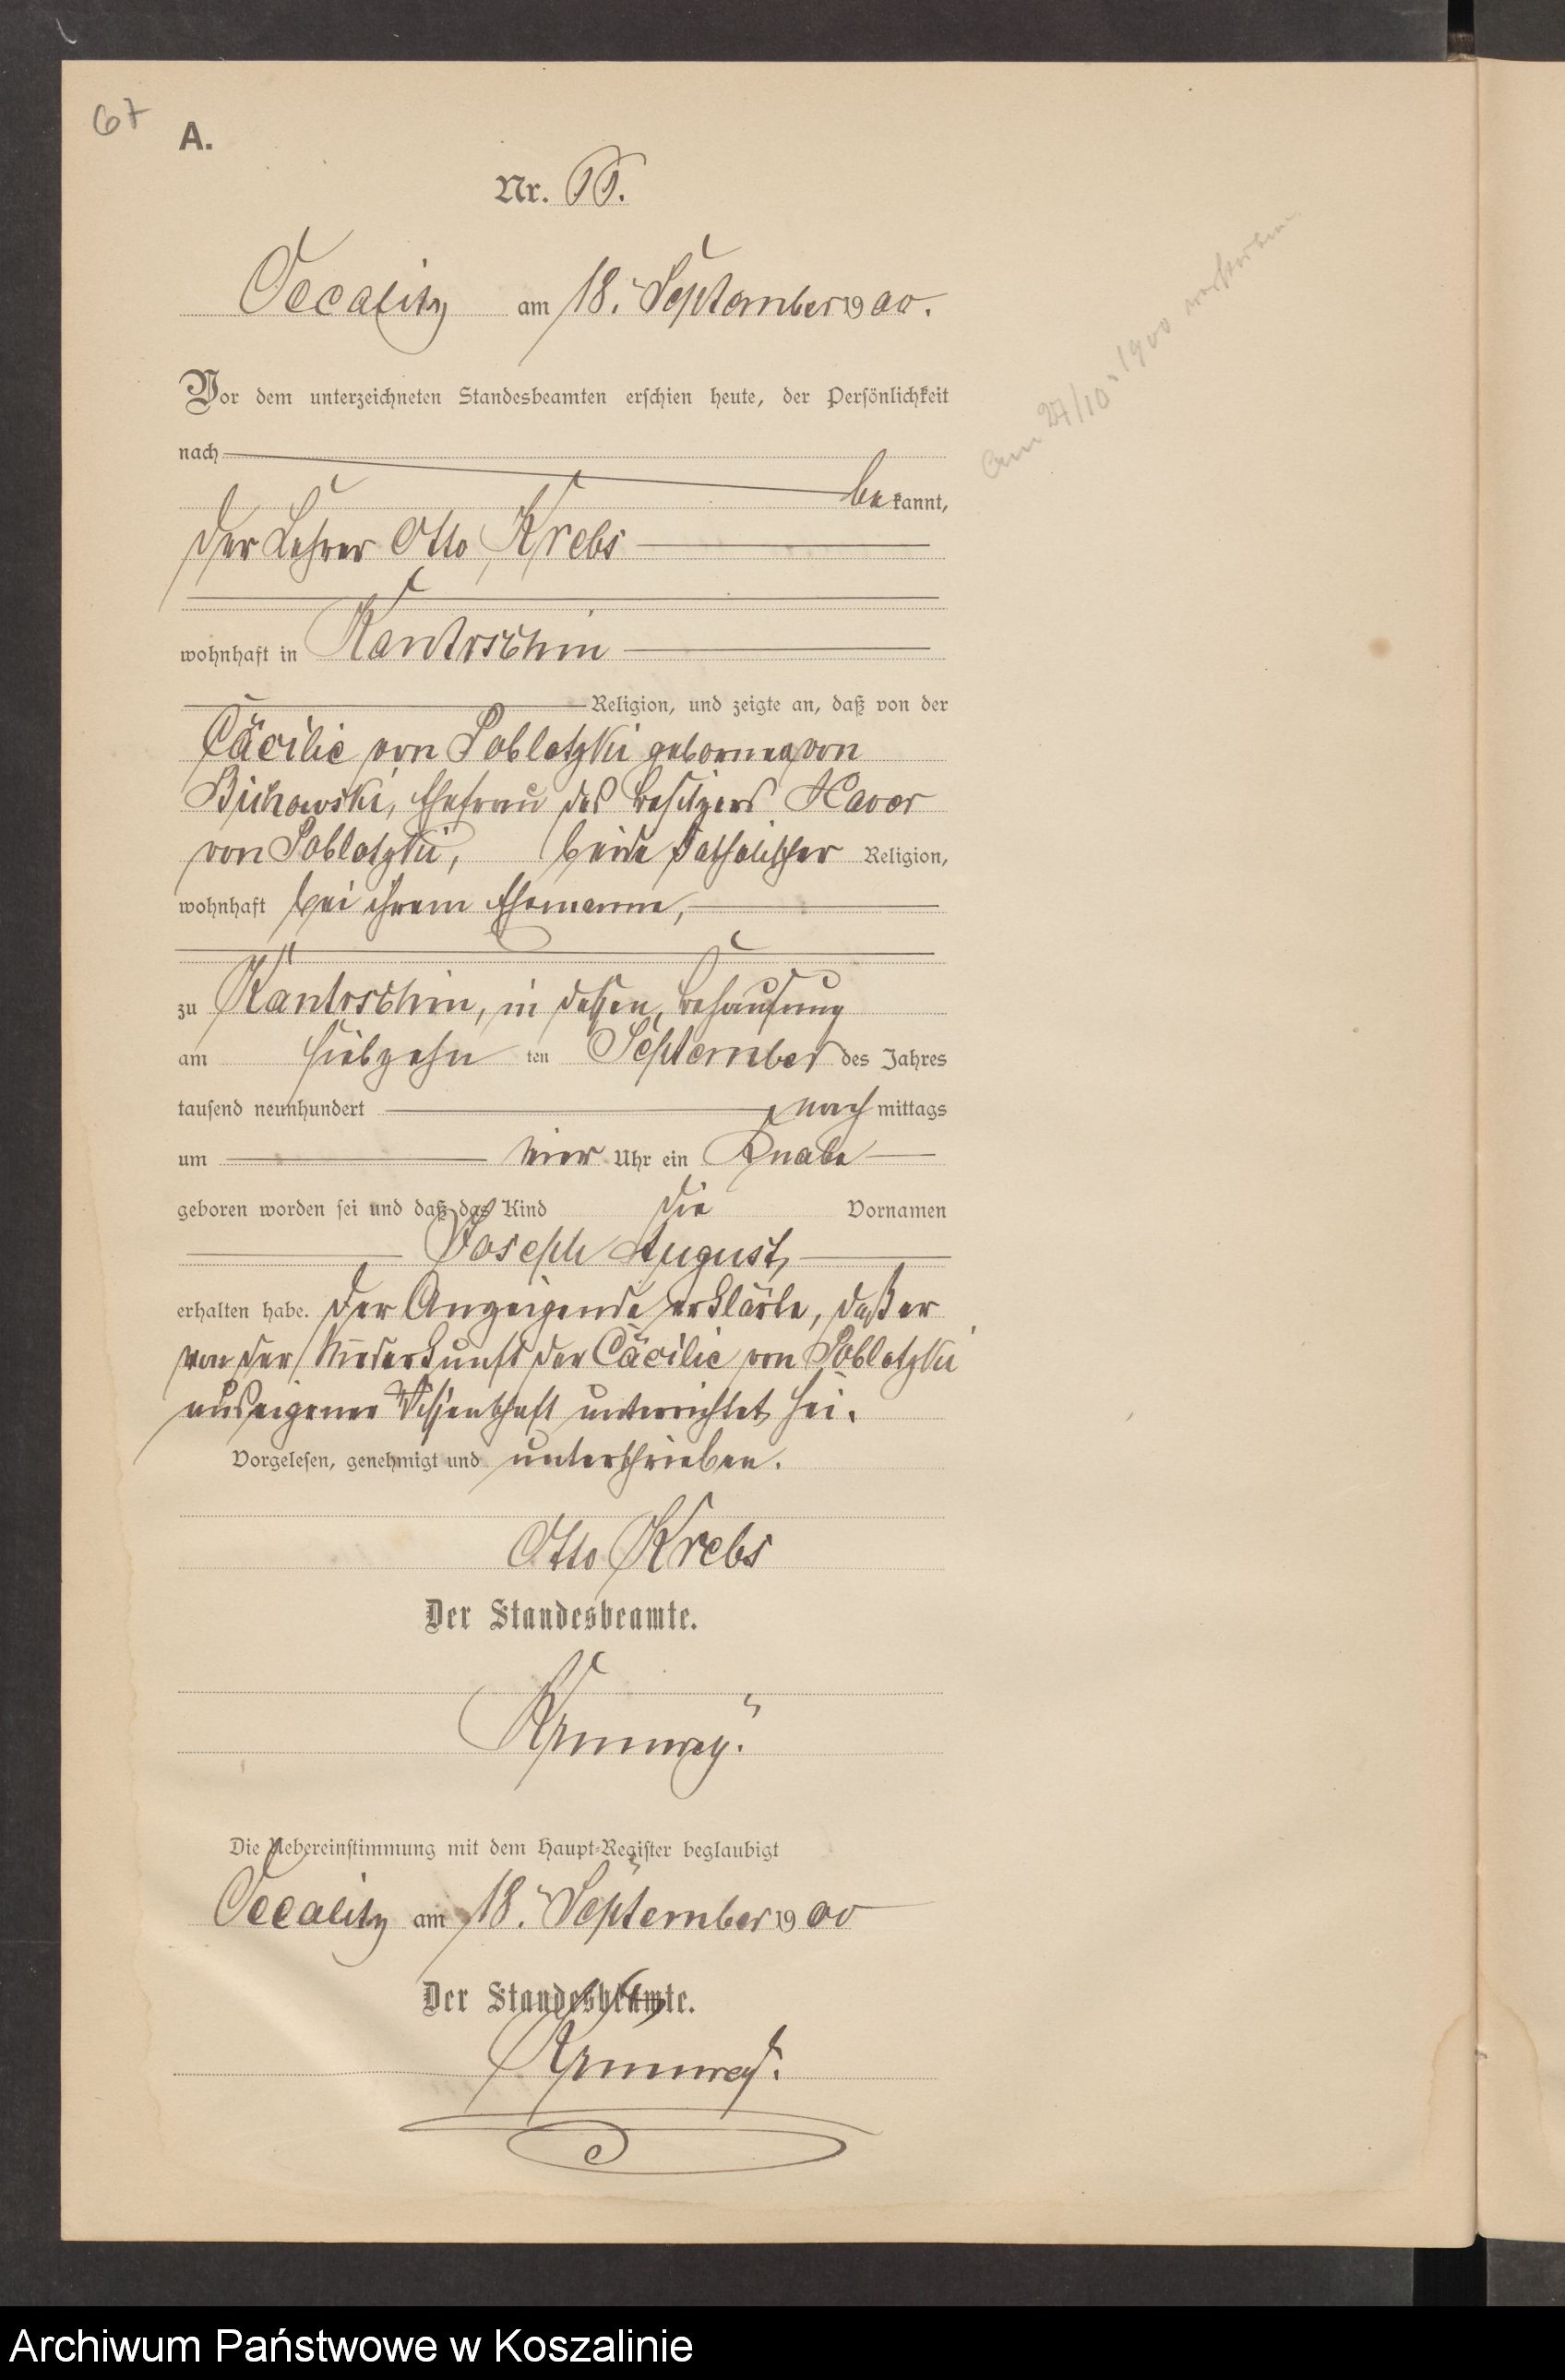 67
A.
Nr. 65.
Occalitz am 18. September 1900.
Vor dem unterzeichneten Standesbeamten erschien heute, der Persönlichkeit
nach
bekannt,
der Lehrer Otto Krebs
wohnhaft in Kantrschin
Religion, und zeigte an, daß von der
Cäcilie von Poblotzki geborenen von
Bichowski, Ehefrau des Besitzers Xaver
von Poblotzki, beide katholischer Religion,
wohnhaft bei ihrem Ehemanne,
zu Kantrschin, in dessen Behausung
am siebzehn ten September des Jahres
tausend neunhundert nach mittags
um vier Uhr ein Knabe
geboren worden sei und daß das Kind die Vornamen
Joseph August,
erhalten habe. Der Anzeigende erklärte, daß er
von der Niederkunft der Cäcilie von Poblotzki
aus eigener Wissenschaft unterrichtet sei.
Vorgelesen, genehmigt und unterschrieben.
Otto Krebs
Der Standesbeamte.
Die Uebereinstimmung mit dem Haupt-Register beglaubigt
Occalitz am 18. September 1900
Der Standesbeamte.
am 27/10. 1900 verstorben
Archiwum Państwowe w Koszalinie